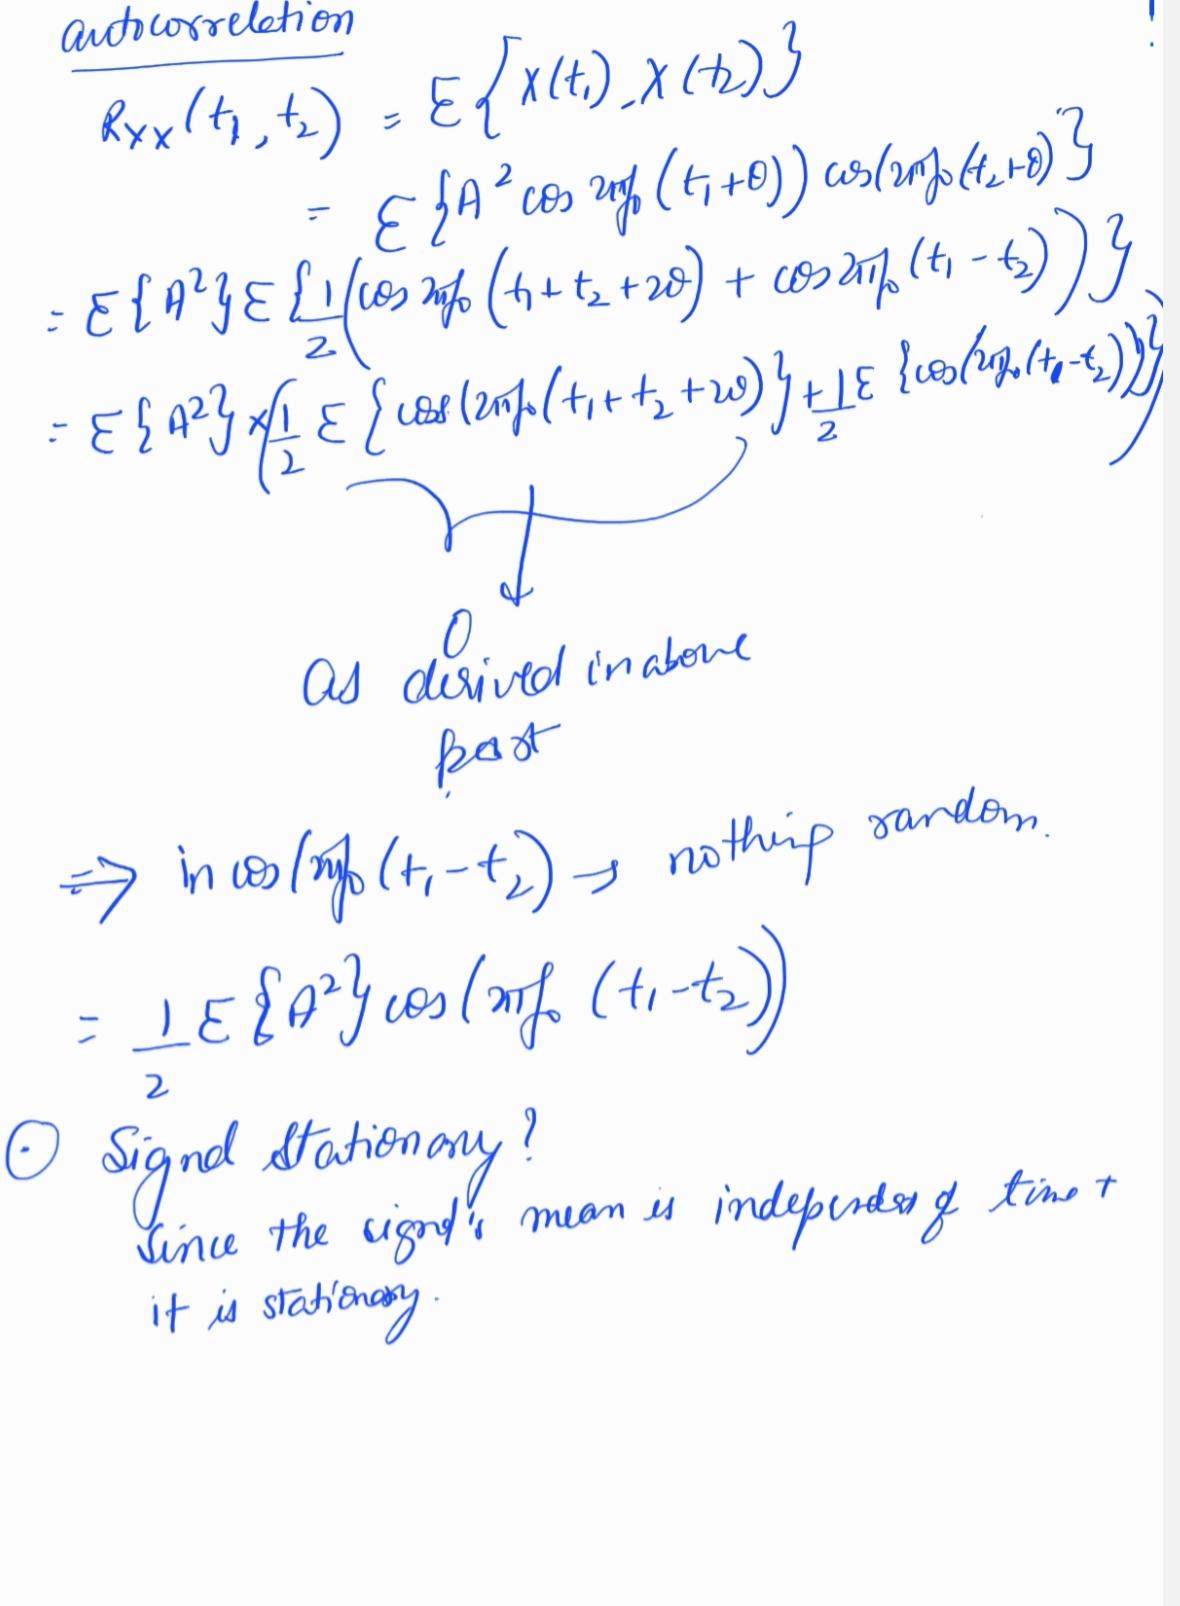 autocorrelation
Rxx(t1, t2) = E{X(t1) . X(t2)}
= E{A² cos 2πf0 (t1+θ)) cos(2πf0 (t2+θ)}
= E{A²} E{1/2 (cos 2πf0 (t1+t2+2θ) + cos 2πf0 (t1-t2))}
= E{A²} × (1/2 E{cos(2πf0(t1+t2+2θ)} + 1/2 E{cos(2πf0(t1-t2))})
0
as derived in above
part
⇒ in cos(2πf0 (t1-t2) → nothing random.
= 1/2 E{A²} cos(2πf0 (t1-t2))
⊙ Signal Stationary?
Since the signal's mean is independent of time t
it is stationary.